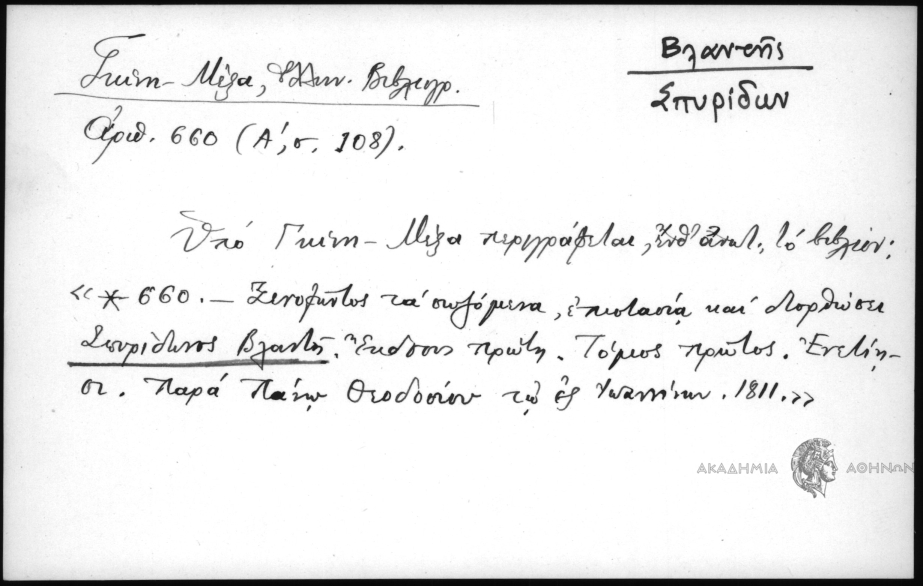 Γκίνη - Μέξα, Ἑλλην. Βιβλιογρ.
Ἀριθ. 660 (Α΄, σ. 108).
Βλαντῆς
Σπυρίδων
Ὑπό Γκίνη - Μέξα περιγράφεται, ἔνθ' ἀνωτ., τό βιβλίον:
«* 660. — Ξενοφῶντος τά σωζόμενα, ἐπιστασίᾳ καί διορθώσει
Σπυρίδωνος Βλαντῆ. Ἔκδοσις πρώτη. Τόμος πρῶτος. Ἐνετίη-
σι. Παρά Πάνῳ Θεοδοσίου τῷ ἐξ Ἰωαννίνων. 1811.»
ΑΚΑΔΗΜΙΑ ΑΘΗΝΩΝ